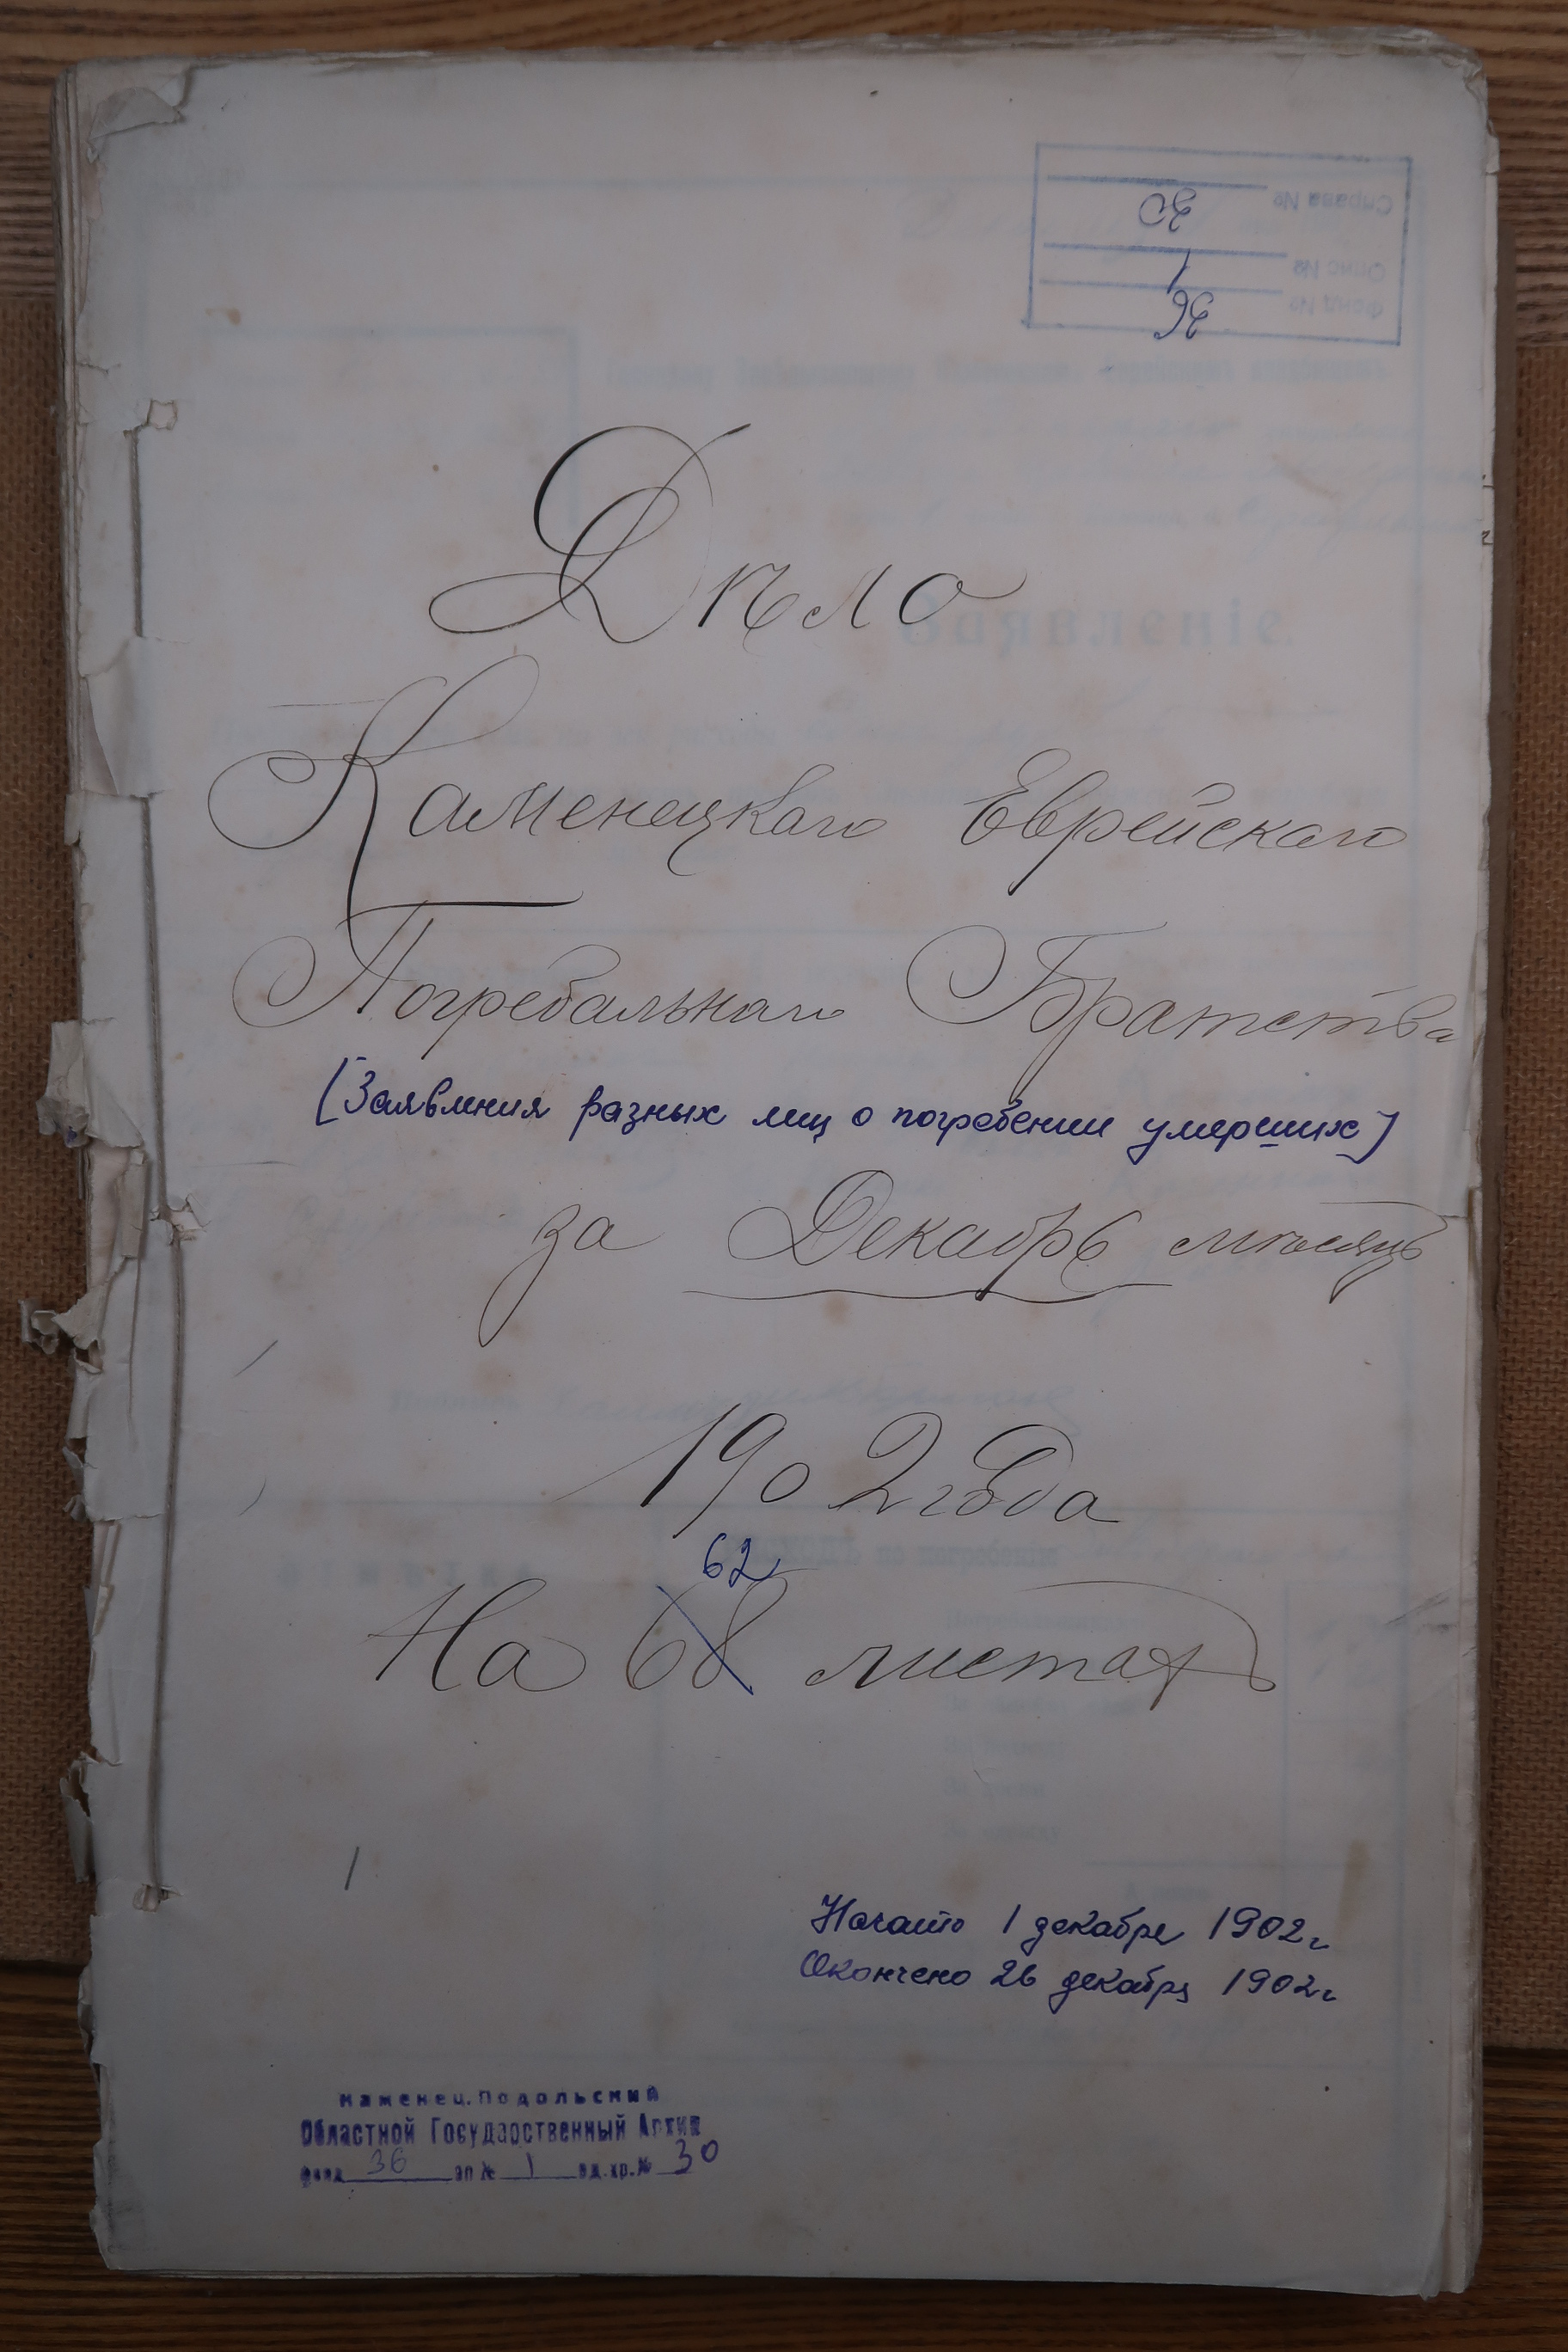 Справа № 30
Опис № 1
Фонд № 36
Дѣло
Каменецкаго Еврейскаго
Погребальнаго Братства
(Заявления разных лиц о погребении умерших)
за Декабрь мѣсяцъ
1902 года
62
На 68 листахъ
Начато 1 декабря 1902 г
Окончено 26 декабря 1902 г
Каменец.Подольский
Областной Государственный Архив
фонд 36 оп № 1 ед.хр.№ 30
Заявленіе.